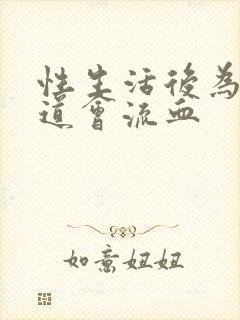 性生活後為
道會流血
如意妞妞